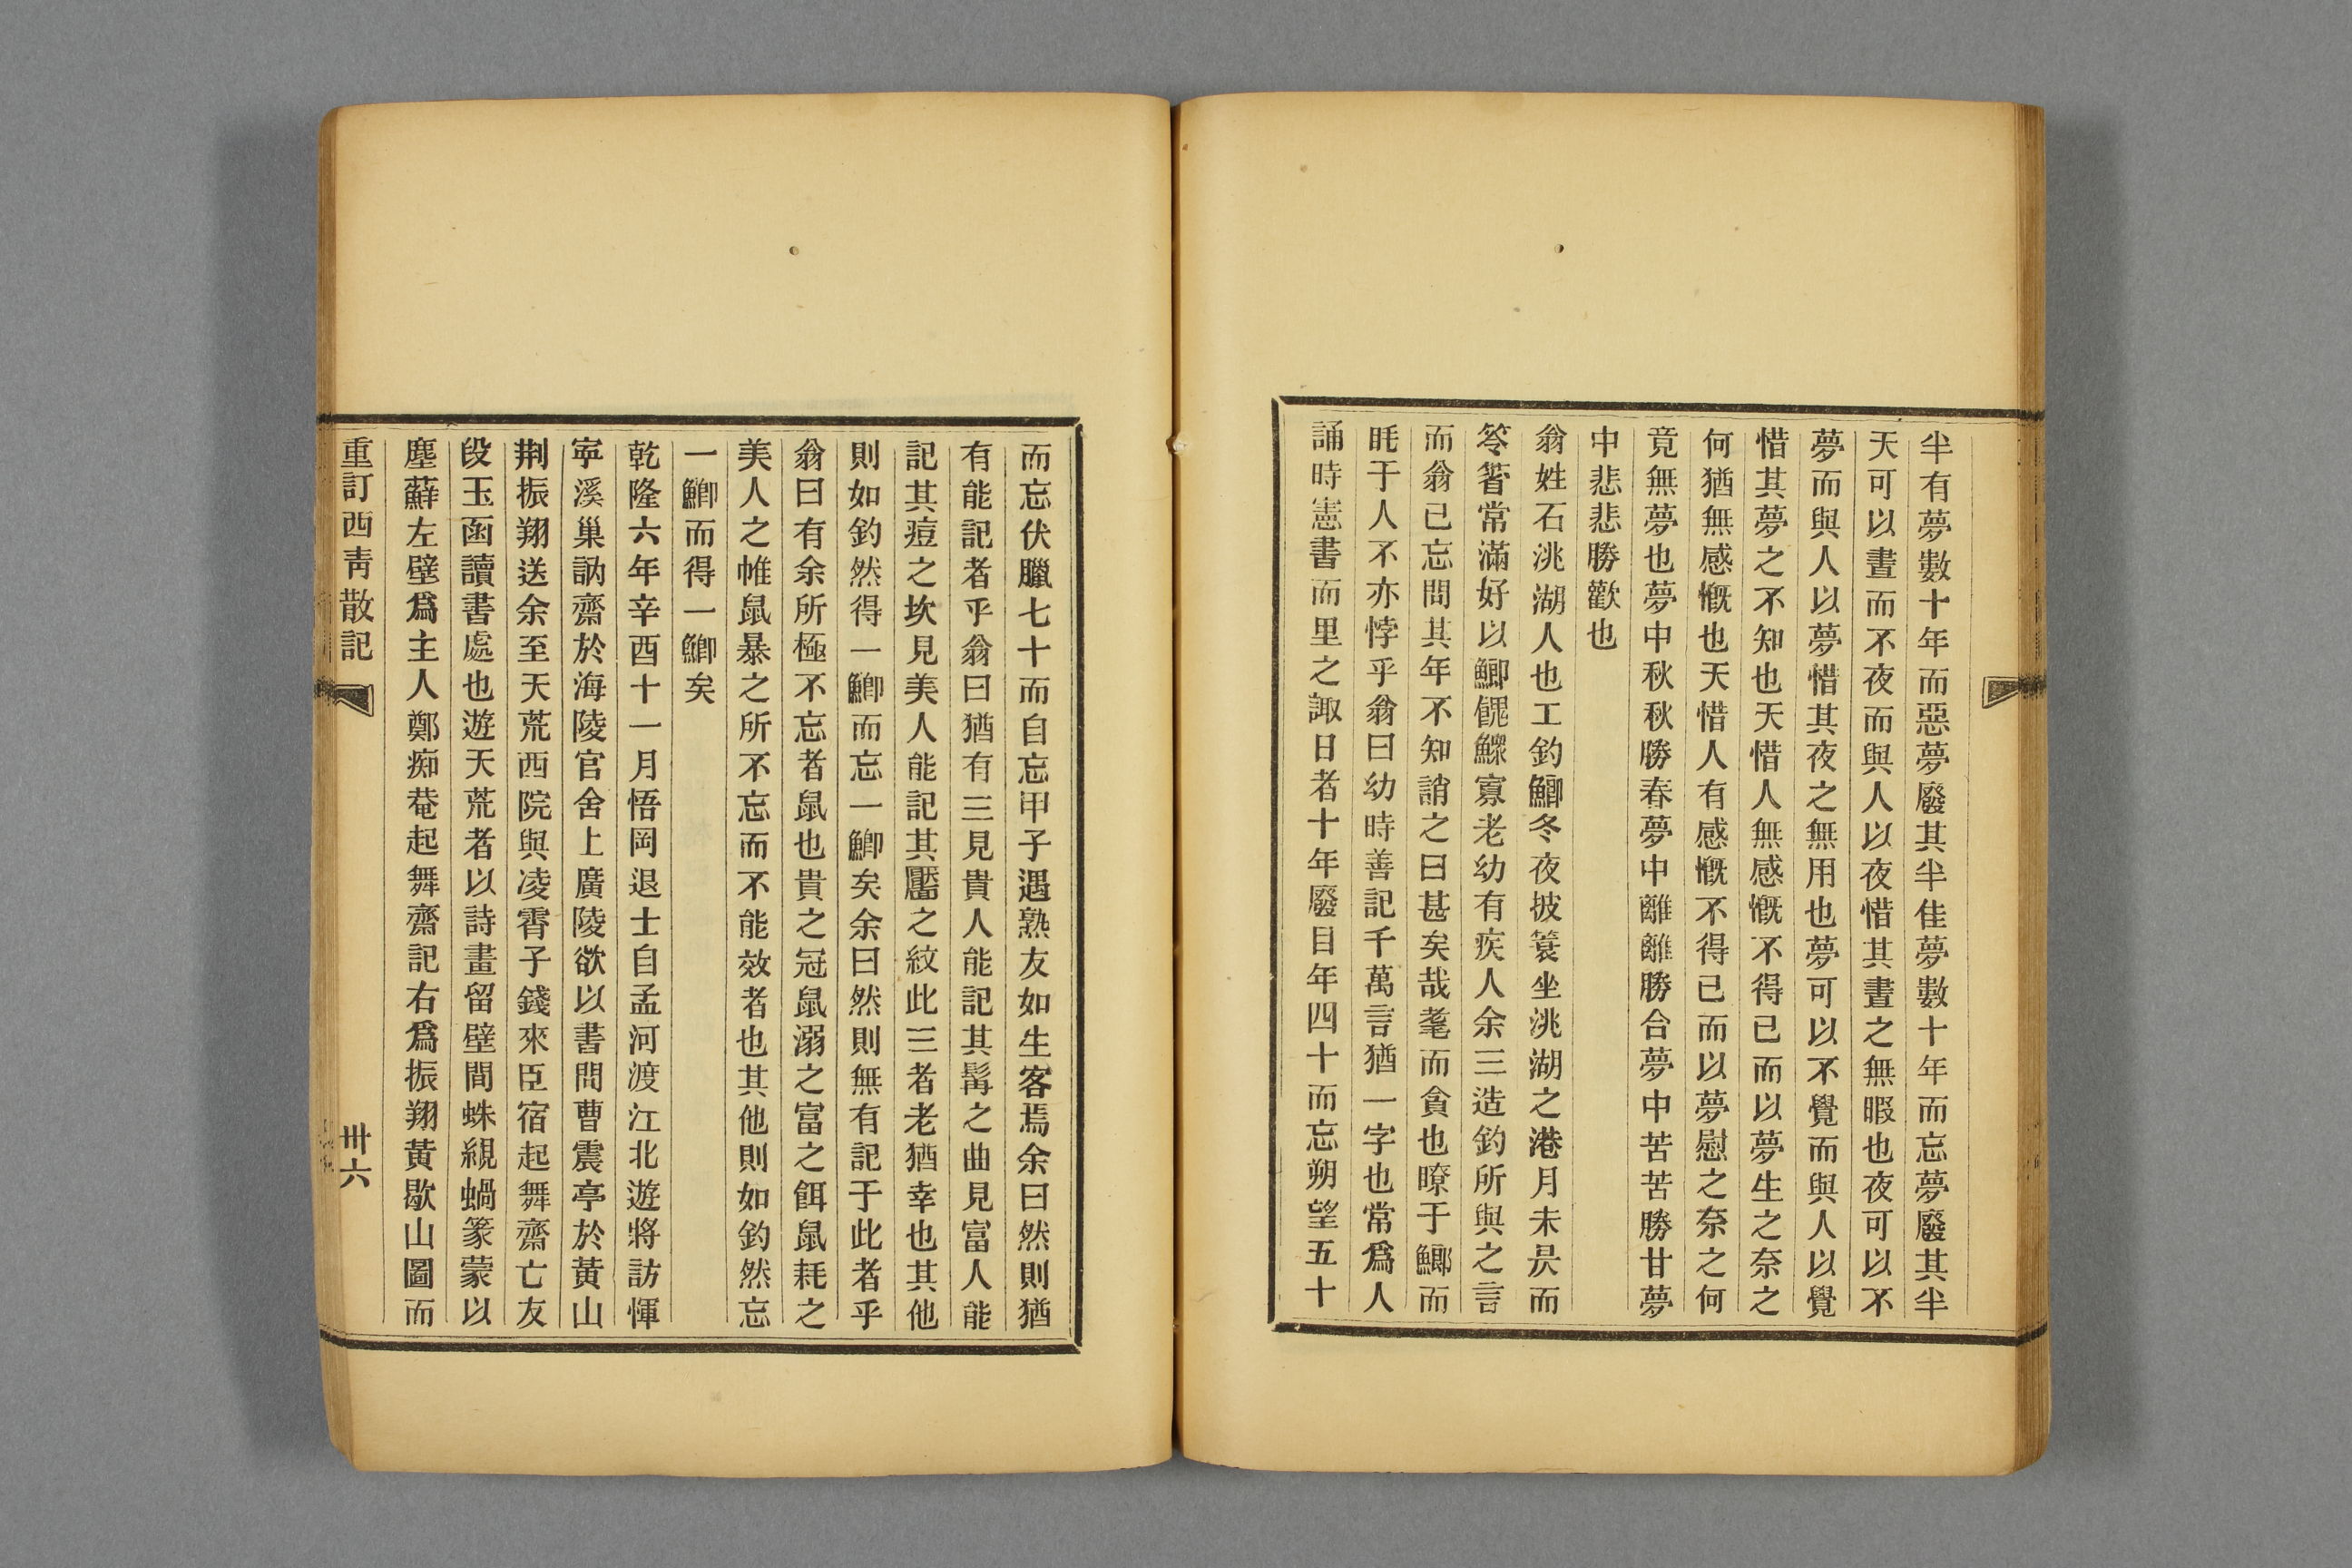 半有夢數十年而惡夢廢其半佳夢數十年而忘夢廢其半
天可以晝而不夜而與人以夜惜其晝之無暇也夜可以不
夢而與人以夢惜其夜之無用也夢可以不覺而與人以覺
惜其夢之不知也天惜人無感慨不得已而以夢生之奈之
何猶無感慨也天惜人有感慨不得已而以夢慰之奈之何
竟無夢也夢中秋秋勝春夢中離離勝合夢中苦苦勝甘夢
中悲悲勝歡也
翁姓石洮湖人也工釣鯽冬夜披簑坐洮湖之港月未昃而
笭箵常滿好以鯽餽鰥寡老幼有疾人余三造釣所與之言
而翁已忘問其年不知誚之曰甚矣哉耄而貪也瞭于鯽而
眊于人不亦悖乎翁曰幼時善記千萬言猶一字也常爲人
誦時憲書而里之諏日者十年廢目年四十而忘朔望五十
而忘伏臘七十而自忘甲子遇熟友如生客焉余曰然則猶
有能記者乎翁曰猶有三見貴人能記其髯之曲見富人能
記其痘之坎見美人能記其靨之紋此三者老猶幸也其他
則如釣然得一鯽而忘一鯽矣余曰然則無有記于此者乎
翁曰有余所極不忘者鼠也貴之冠鼠溺之富之餌鼠耗之
美人之帷鼠暴之所不忘而不能效者也其他則如釣然忘
一鯽而得一鯽矣
乾隆六年辛酉十一月悟岡退士自孟河渡江北遊將訪惲
寜溪巢訥齋於海陵官舍上廣陵欲以書問曹震亭於黃山
荆振翔送余至天荒西院與凌霄子錢來臣宿起舞齋亡友
段玉函讀書處也遊天荒者以詩畫留壁間蛛網蝸篆蒙以
塵蘚左壁爲主人鄭痴菴起舞齋記右爲振翔黃歇山圖而
重訂西青散記
卅六